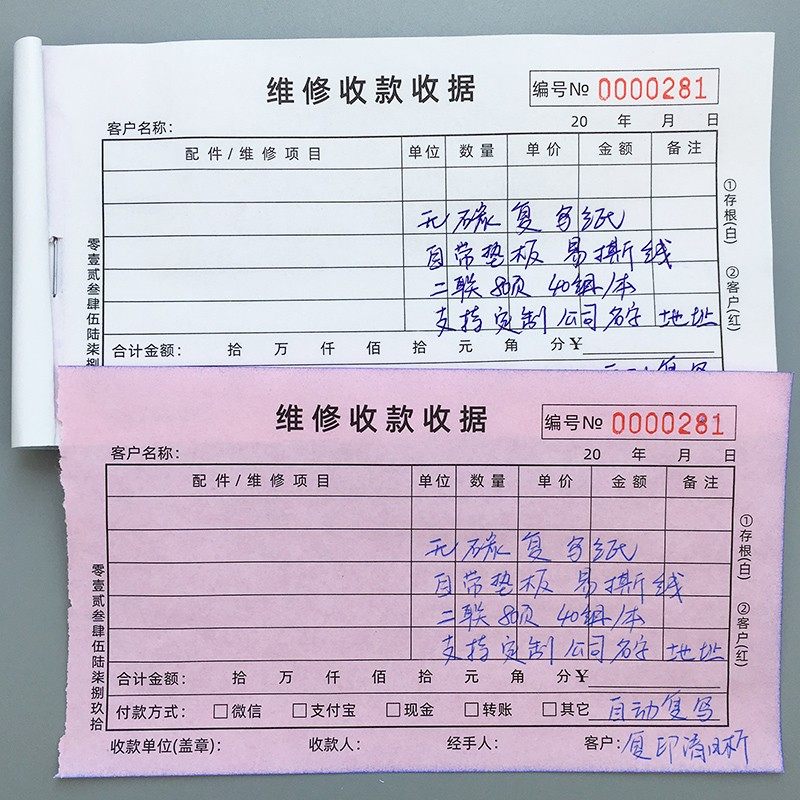 维修收款收据
编号№ 0000281
客户名称：
20 年 月 日
配件/维修项目 单位 数量 单价 金额 备注
无碳复写纸
自带垫板 易撕线
二联80页 40组/本
支持定制公司名字 地址
合计金额： 拾 万 仟 佰 拾 元 角 分￥
零壹贰叁肆伍陆柒捌
①存根(白) ②客户(红)
维修收款收据
编号№ 0000281
客户名称：
20 年 月 日
配件/维修项目 单位 数量 单价 金额 备注
无碳复写纸
自带垫板 易撕线
二联80页 40组/本
支持定制公司名字 地址
合计金额： 拾 万 仟 佰 拾 元 角 分￥
付款方式： □微信 □支付宝 □现金 □转账 □其它 自动复写
收款单位(盖章)： 收款人： 经手人： 客户：复印清晰
零壹贰叁肆伍陆柒捌玖拾
①存根(白) ②客户(红)